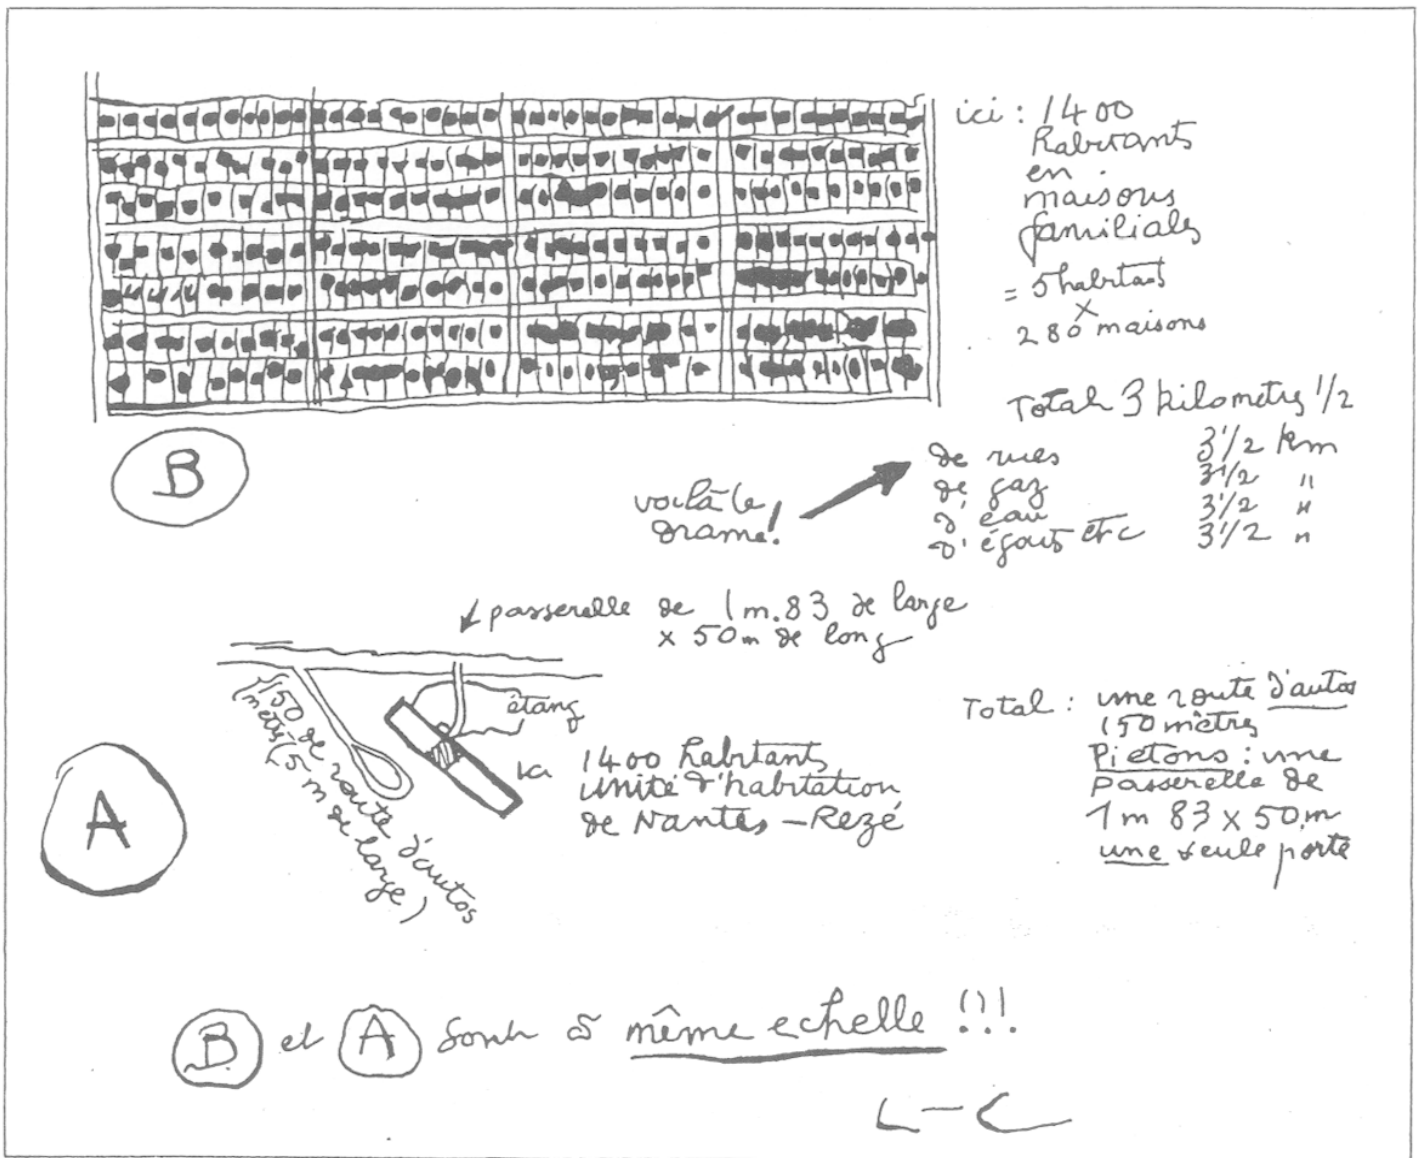 ici : 1400
habitants
en
maisons
familiales
= 5 habitants
x
280 maisons
Total 3 kilometres 1/2
de rues 3 1/2 km
de gaz 3 1/2 "
d'eau 3 1/2 "
d'égouts etc 3 1/2 "
voilà le
drame!
B
passerelle de 1m.83 de large
x 50m de long
150 de route d'autos
mètres (5 m de large)
étang
1400 habitants
unité d'habitation
de Nantes - Rezé
A
Total : une route d'autos
150 mètres
Pietons : une
passerelle de
1m 83 x 50m
une seule porte
B et A sont à même echelle !!!
L-C